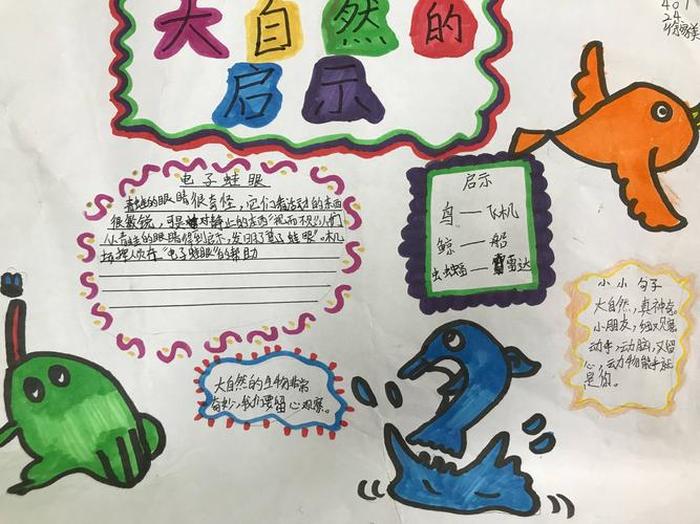 401
24
大自然的
启示
电子蛙眼
青蛙的眼睛很奇怪，它们看活动的东西
很敏锐，可是对静止的东西“视而不见”人们
从青蛙的眼睛得到启示，发明了电子蛙眼”。机
场指挥人员在“电子蛙眼”的帮助
启示
鸟—飞机
鲸—船
虫蝙蝠—雷达
小小句子
大自然，真神奇。
小朋友，细观察
动手，动脑，又留
心，动物能手就
是你。
大自然的生物非常
奇妙，我们要留心观察。